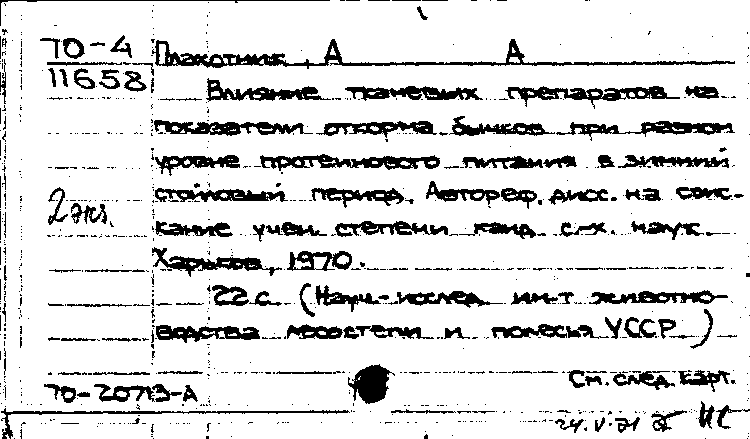 70-4 Плахотник, А А
11658
Влияние тканевых препаратов на
показатели откорма бычков при разном
уровне протеинового питания в зимний
стойловый период. Автореф. дисс. на соис-
2 экз.
кание учен. степени канд. с.-х. наук.
Харьков, 1970.
22 с. (Науч.-исслед. ин-т животно-
водства лесостепи и полесья УССР)
См. след. карт.
70-20713-А
24.V-71